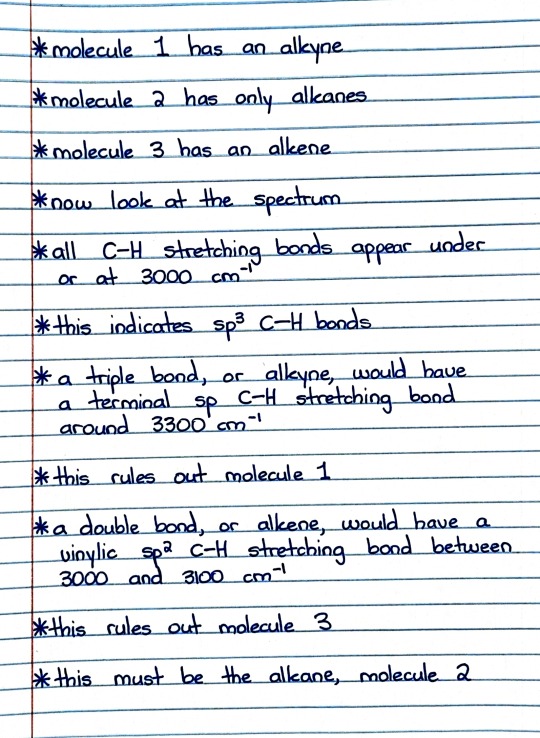 *molecule 1 has an alkyne
*molecule 2 has only alkanes
*molecule 3 has an alkene
*now look at the spectrum
*all C-H stretching bonds appear under
or at 3000 cm⁻¹
*this indicates sp³ C-H bonds
*a triple bond, or alkyne, would have
a terminal sp C-H stretching bond
around 3300 cm⁻¹
*this rules out molecule 1
*a double bond, or alkene, would have a
vinylic sp² C-H stretching bond between
3000 and 3100 cm⁻¹
*this rules out molecule 3
*this must be the alkane, molecule 2